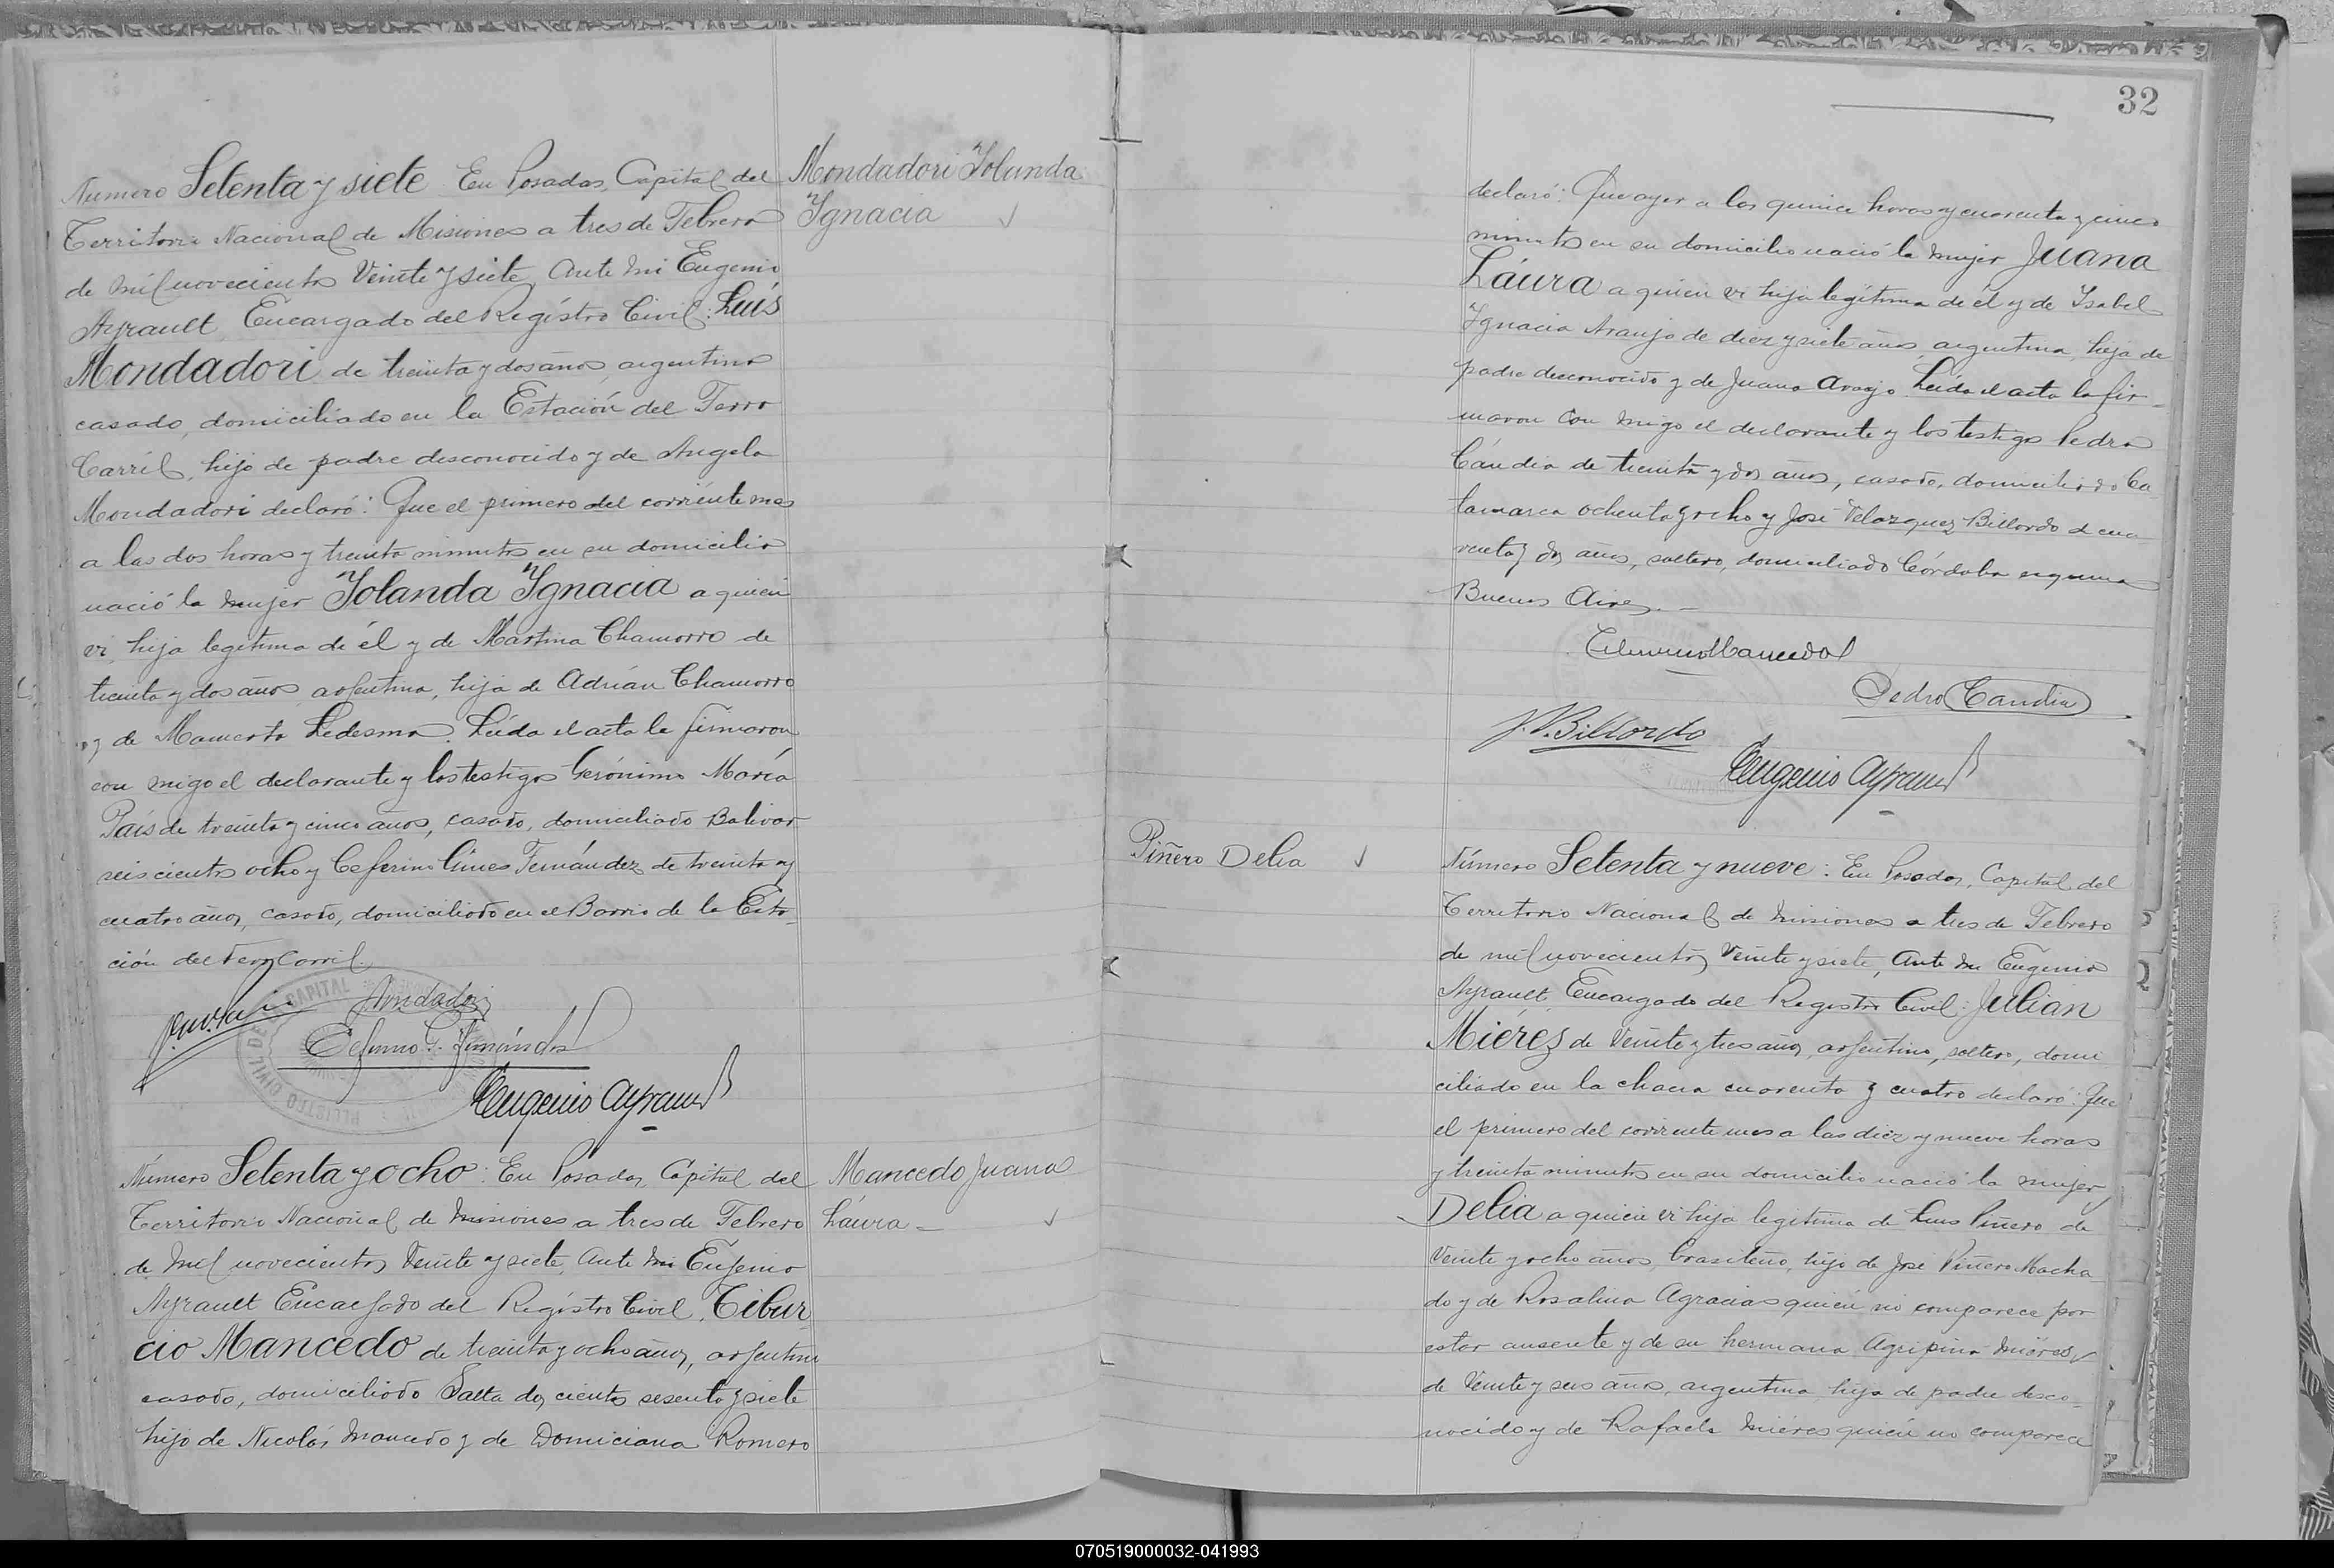 Numero Setenta y siete En Posadas, Capital del
Territorio Nacional de Misiones a tres de Febrero
de mil novecientos Veinte y siete, Ante mi Eugenio
Ayrault, Encargado del Registro Civil: Luis
Mondadori de treinta y dos años, argentino
casado, domiciliado en la Estación del Ferro
Carril, hijo de padre desconocido y de Angela
Mondadori declaró: Que el primero del corriente mes
a las dos horas y treinta minutos en su domicilio
nació la mujer Yolanda Ygnacia a quien
vi, hija legitima de él y de Martina Chamorro de
treinta y dos años, argentina, hija de Adrián Chamorro
y de Mamerta Ledesma. Leida el acta la firmaron
con migo el declarante y los testigos Gerónimo María
País de treinta y cinco años, casado, domiciliado Bolivar
seiscientos ocho y Ceferino Gines Fernández de treinta y
cuatro años, casado, domiciliado en el Barrio de la Esta-
ción del Ferro Carril.
Mondadori
Eugenio Ayrault
Mondadori Yolanda
Ygnacia
Número Setenta y ocho: En Posadas, Capital del
Territorio Nacional de Misiones a tres de Febrero
de Mil novecientos Veinte y siete, Ante mi Eugenio
Ayrault Encargado del Registro Civil, Tibur
cio Mancedo de treinta y ocho años, argentino
casado, domiciliado Salta dos cientos sesenta y siete
hijo de Nicolás Mancedo y de Domiciana Romero
Mancedo Juana
Láura -
32
declaró: Que ayer a las quince horas y cuarenta y cinco
minutos en su domicilio nació la mujer Juana
Láura a quien vi hija legítima de él y de Ysabel
Ygnacia Araujo de diez y siete años, argentina, hija de
padre desconocido y de Juana Araujo. Leida el acta la fir-
maron con migo el declarante y los testigos Pedro
Cándia de treinta y dos años, casado, domiciliado Ca
tamarca ochenta y ocho y José Velazquez Billordo de cua
renta y dos años, soltero, domiciliado Córdoba esquina
Buenos Aires. -
Pedro Candia
J. V. Billordo
Eugenio Ayrault
Piñero Delia
Número Setenta y nueve: En Posadas, Capital del
Territorio Nacional de Misiones a tres de Febrero
de mil novecientos Veinte y siete, Ante mi Eugenio
Ayrault, Encargado del Registro Civil: Julian
Miérez de Veinte y tres años, argentino, soltero, domi
ciliado en la chacra cuarenta y cuatro declaró: Que
el primero del corriente mes a las diez y nueve horas
y treinta minutos en su domicilio nació la mujer
Delia a quien vi hija legítima de Luis Piñero de
Veinte y ocho años, brasileño, hijo de José Piñero Macha
do y de Rosalina Agracias quien no comparece por
estar ausente y de su hermana Agripina Miéres
de Veinte y seis años, argentina, hija de padre desco-
nocido y de Rafaela Miéres quien no comparece
070519000032-041993